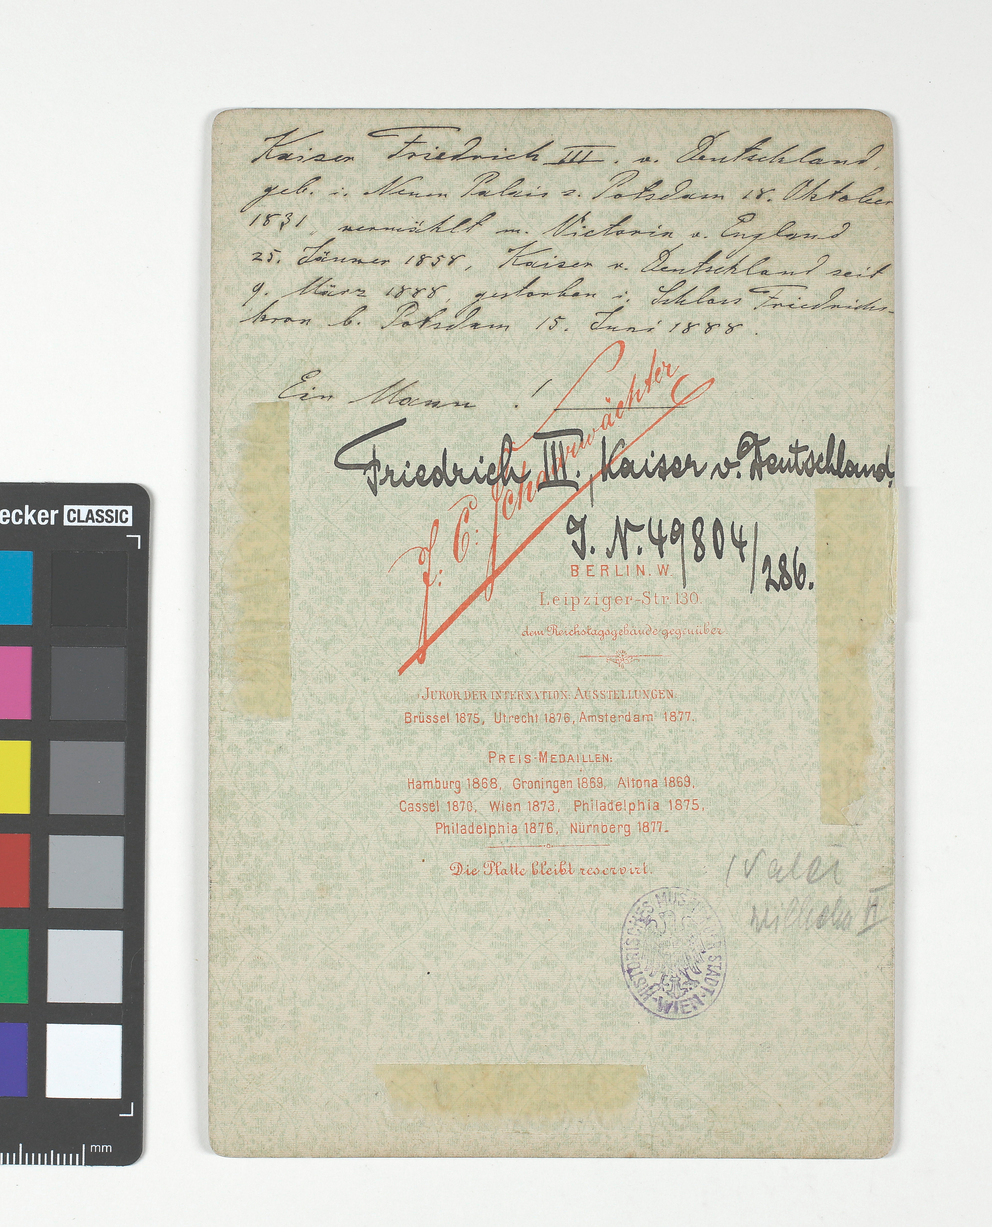 Kaiser Friedrich III. v. Deutschland,
geb. i. Neuen Palais z. Potsdam 18. Oktober
1831, vermählt m. Victoria v. England
25. Jänner 1858, Kaiser v. Deutschland seit
9. März 1888, gestorben i. Schloss Friedrichs-
kron b. Potsdam 15. Juni 1888.
Ein Mann !
J. C. Schaarwächter
Friedrich III., Kaiser v. Deutschland,
I. N. 49804/286.
BERLIN. W.
Leipziger-Str 130.
dem Reichstagsgebäude gegenüber
JUROR DER INTERNATION. AUSSTELLUNGEN.
Brüssel 1875, Utrecht 1876, Amsterdam 1877.
PREIS-MEDAILLEN:
Hamburg 1868, Groningen 1869, Altona 1869,
Cassel 1870, Wien 1873, Philadelphia 1875,
Philadelphia 1876, Nürnberg 1877.
Die Platte bleibt reservirt.
Wilhelm II
HISTORISCHES MUSEUM DER STADT WIEN
ecker CLASSIC
mm